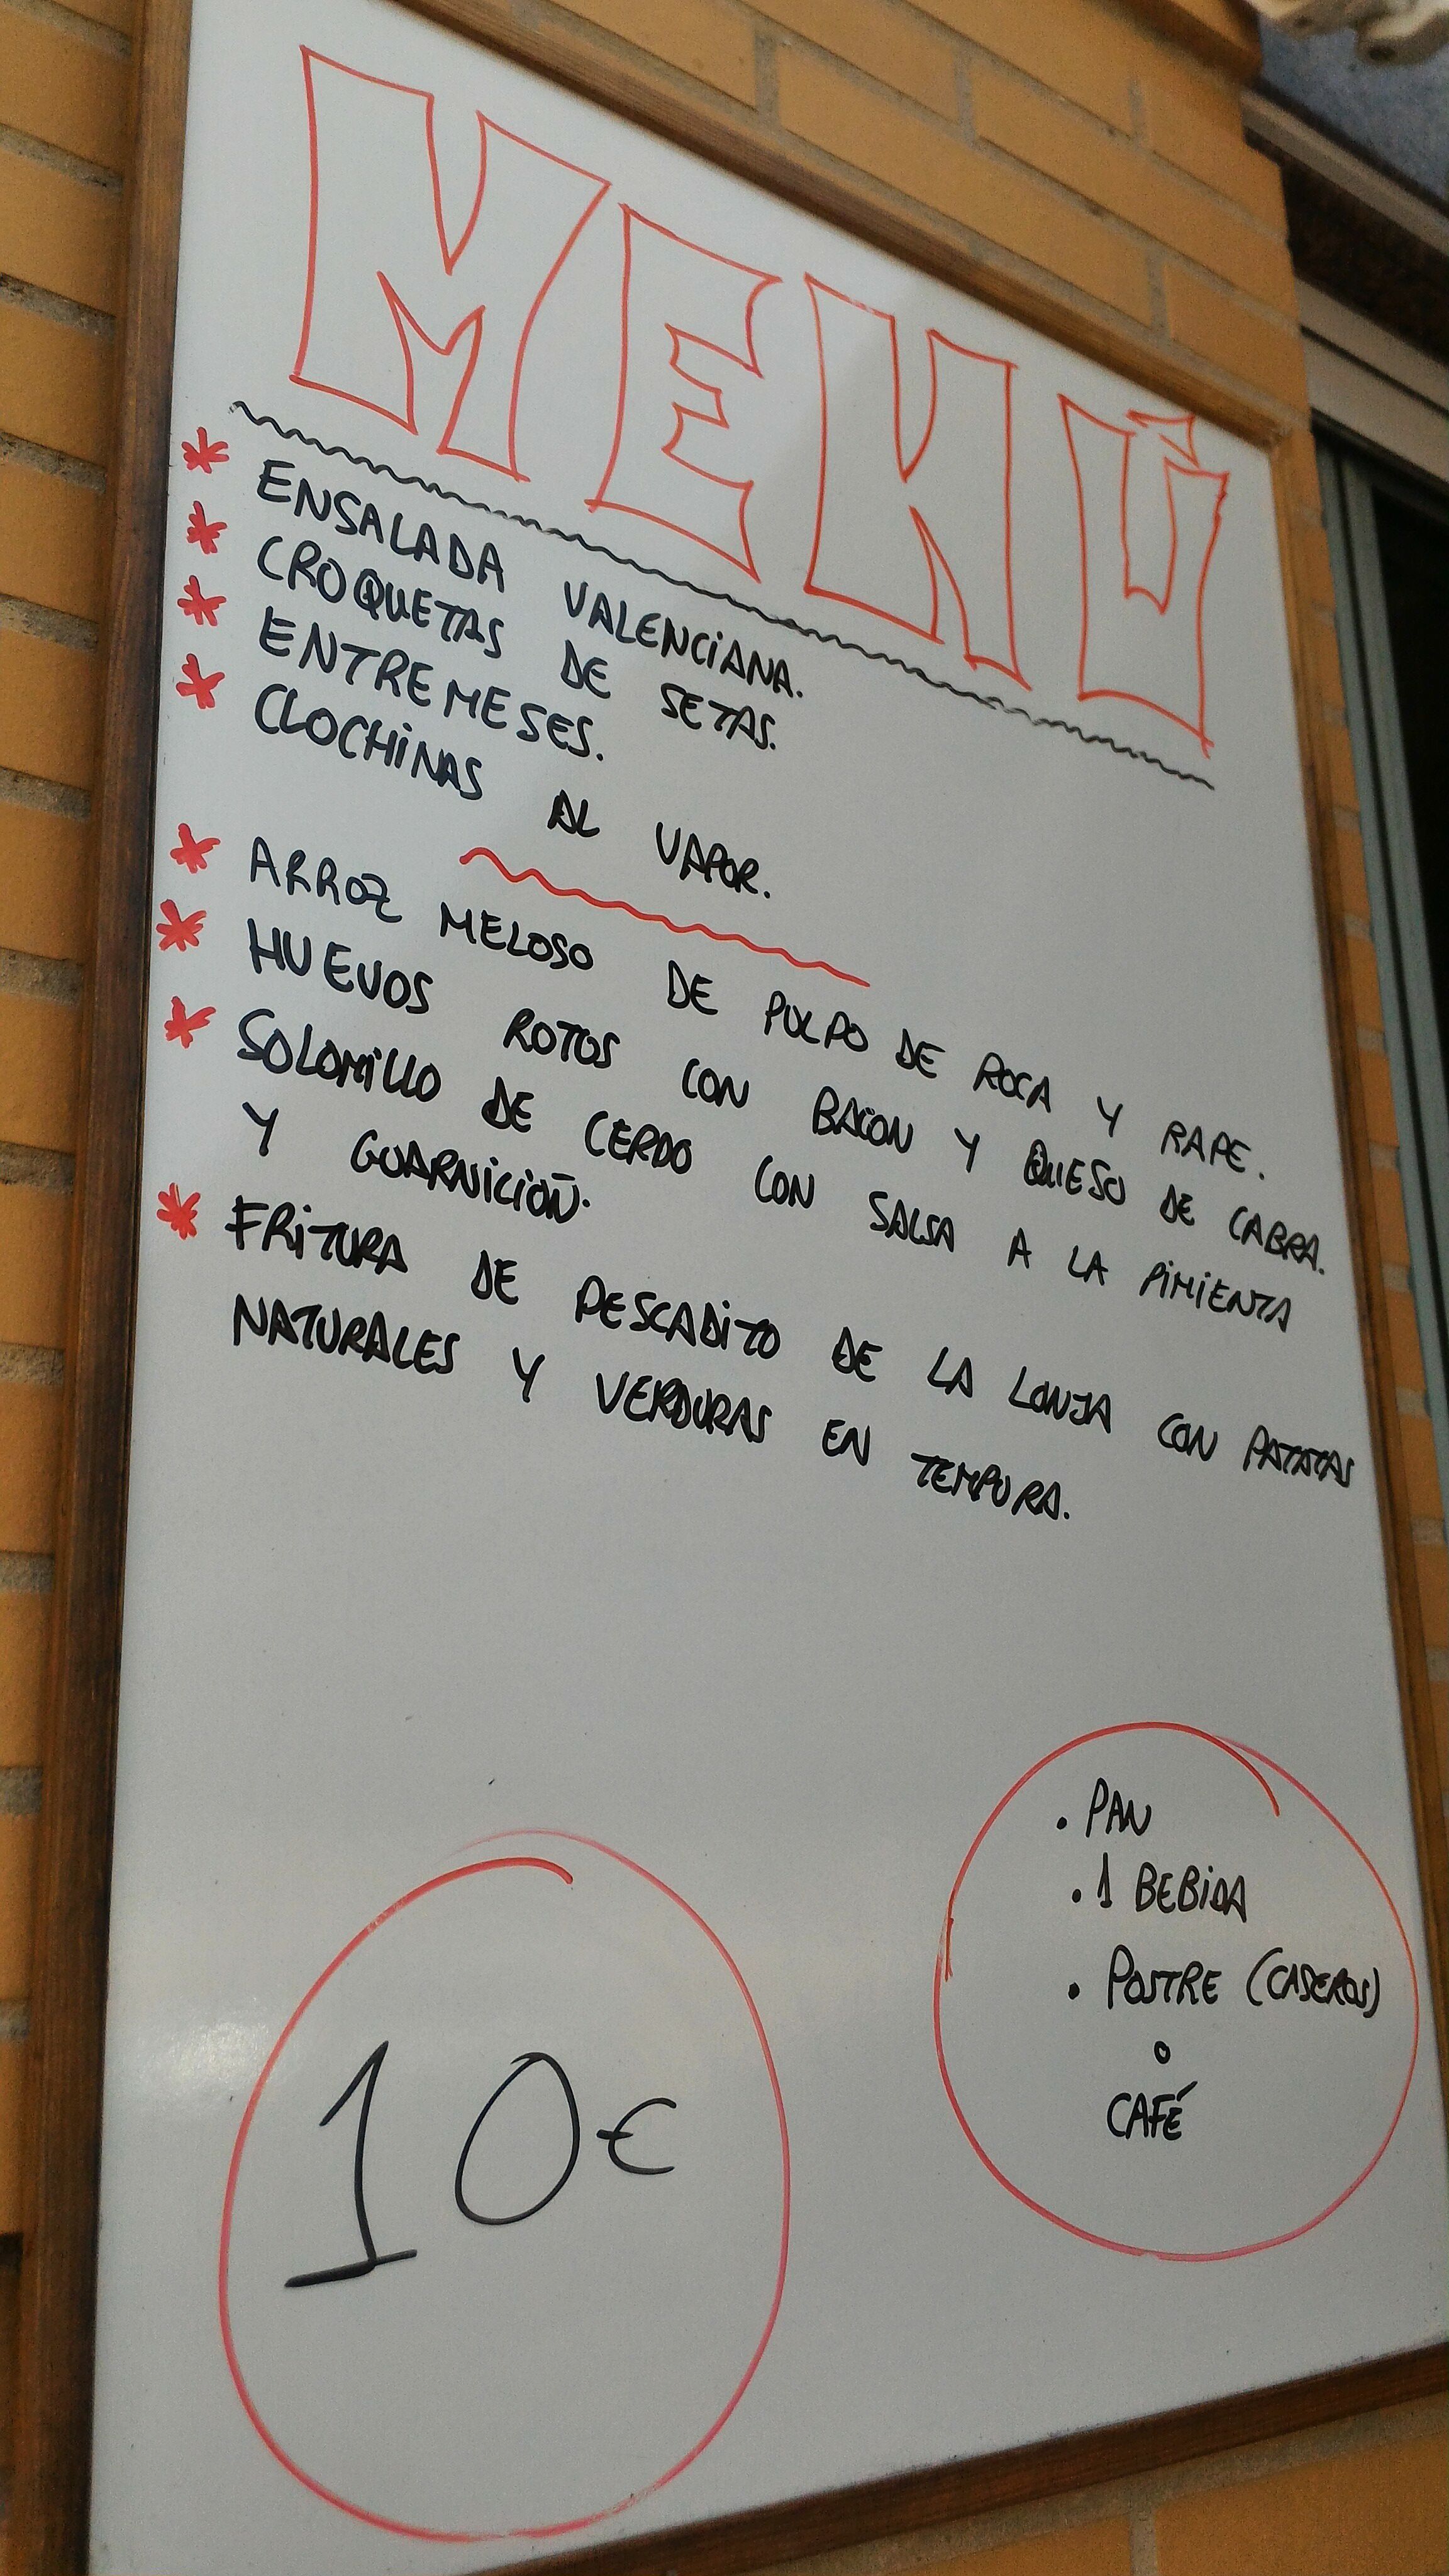 MENÚ
* ENSALADA VALENCIANA.
* CROQUETAS DE SETAS.
* ENTREMESES.
* CLOCHINAS AL VAPOR.
* ARROZ MELOSO DE PULPO DE ROCA Y RAPE.
* HUEVOS ROTOS CON BACON Y QUESO DE CABRA.
* SOLOMILLO DE CERDO CON SALSA A LA PIMIENTA
Y GUARNICIÓN.
* FRITURA DE PESCADITO DE LA LONJA CON PATATAS
NATURALES Y VERDURAS EN TEMPURA.
. PAN
. 1 BEBIDA
. POSTRE (CASEROS)
o
CAFÉ
10€